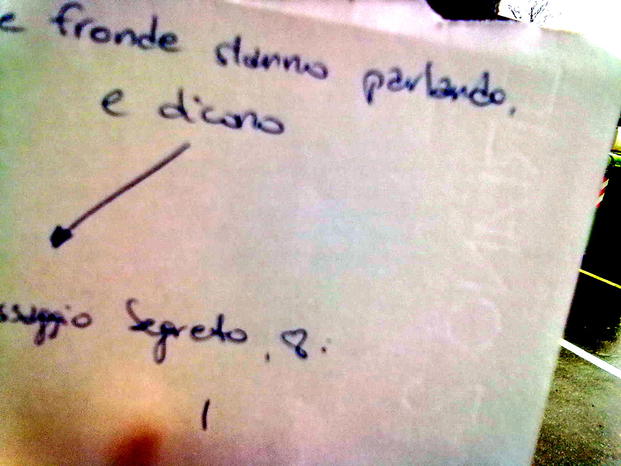 e fronde stanno parlando,
e dicono
ssaggio Segreto, 8.